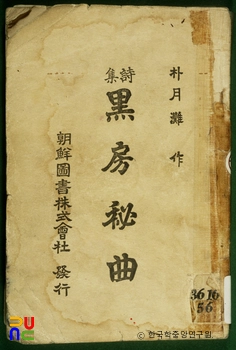 朴月灘 作
詩集
黑房秘曲
朝鮮圖書株式會社 發行
3616
56
©한국학중앙연구원